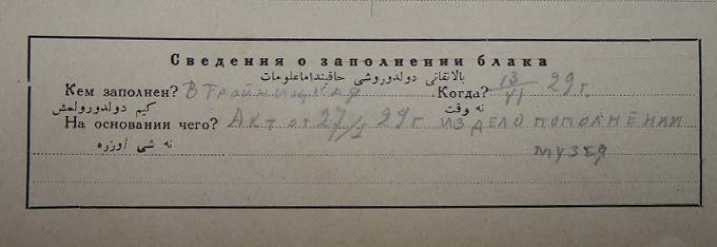 Сведения о заполнении блака
بالانقانى دولدوروشى حاقينداءمعلومات
Кем заполнен? В Тройницкая Когда? 13/VI 29 г.
كيم دولدورولمش نه وقت
На основании чего? Акт от 27 29 г из дело пополнении
نه شى اوزره музея